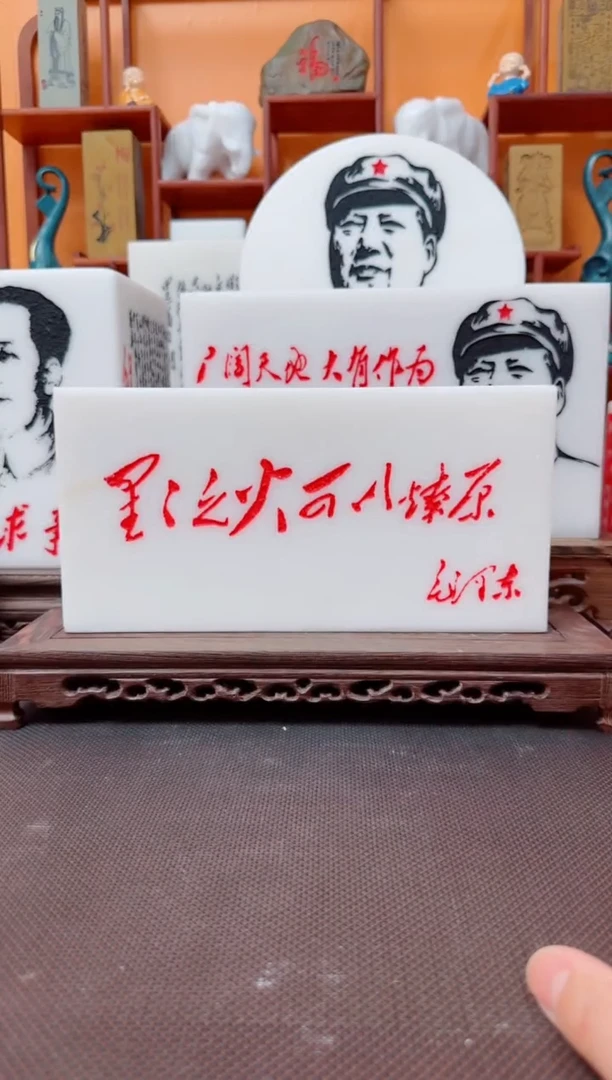 福
广阔天地 大有作为
星星之火可以燎原
毛泽东
求